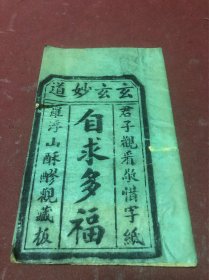 玄玄妙道
君子觀看敬惜字紙
自求多福
羅浮山酥醪觀藏板